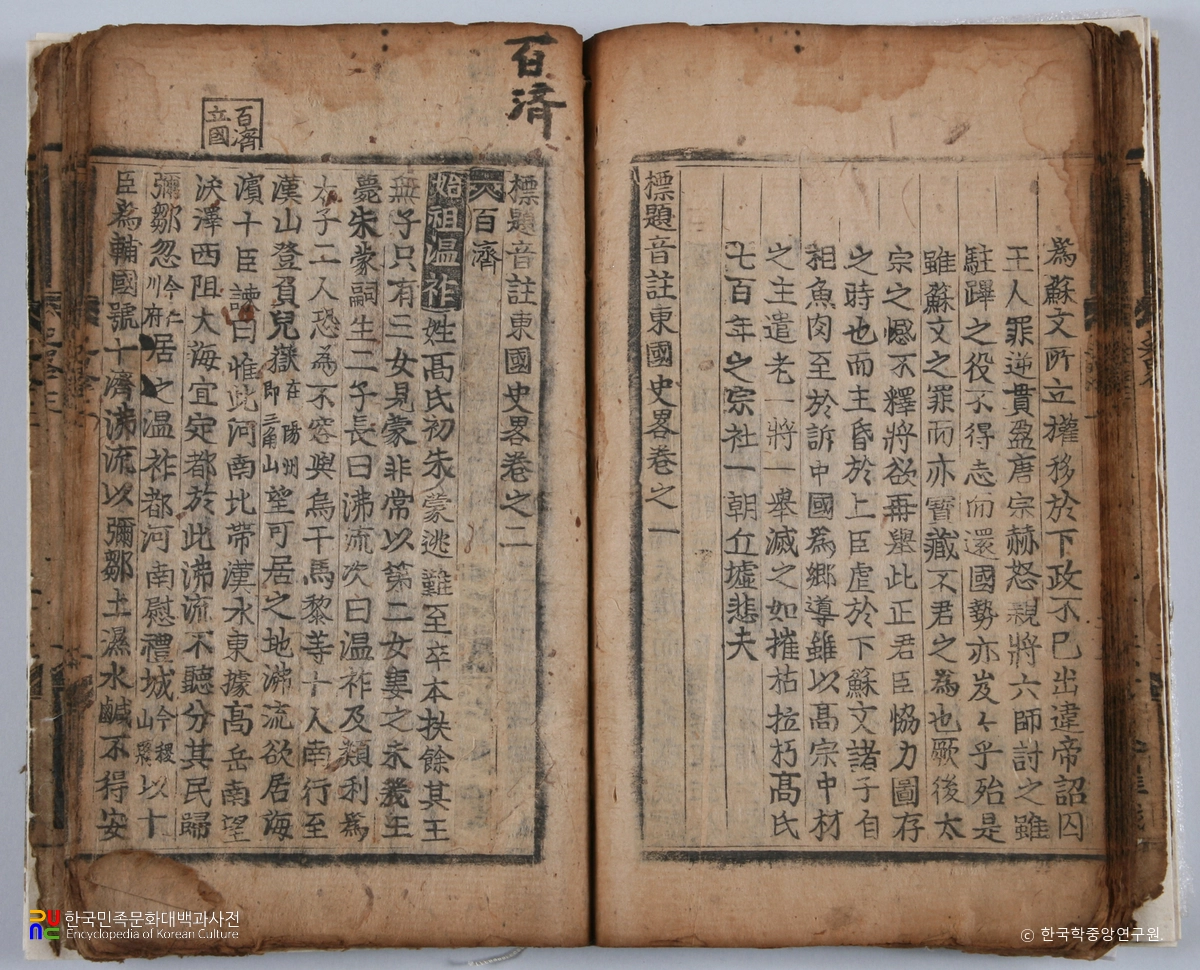 爲蘇文所立權移於下政不已出違帝詔囚
王人罪逆貫盈唐宗赫怒親將六師討之雖
駐蹕之役不得志而還國勢亦岌々乎殆是
雖蘇文之罪而亦寶藏不君之為也厥後太
宗之憾不釋將欲再舉此正君臣恊力圖存
之時也而主昏於上臣虐於下蘇文諸子自
相魚肉至於訴中國為郷導雖以高宗中材
之主遣老一將一舉滅之如摧枯拉朽高氏
七百年之宗社一朝丘墟悲夫
標題音註東國史畧卷之一
百濟
標題音註東國史畧卷之二
百濟
始祖温祚姓高氏初朱蒙逃難至卒本扶餘其王
無子只有三女見蒙非常以第二女妻之未幾王
薨朱蒙嗣生二子長曰沸流次曰温祚及類利爲
太子二人恐為不容與烏干馬黎等十人南行至
漢山登負兒嶽在楊州即三角山望可居之地沸流欲居海
濱十臣諫曰惟此河南北帶漢水東據高岳南望
沃澤西阻大海宜定都於此沸流不聽分其民歸
彌鄒忽今仁川府居之温祚都河南慰禮城今稷山縣以十
臣爲輔國號十濟沸流以彌鄒土濕水鹹不得安
百濟立國
한국민족문화대백과사전
Encyclopedia of Korean Culture
ⓒ 한국학중앙연구원.